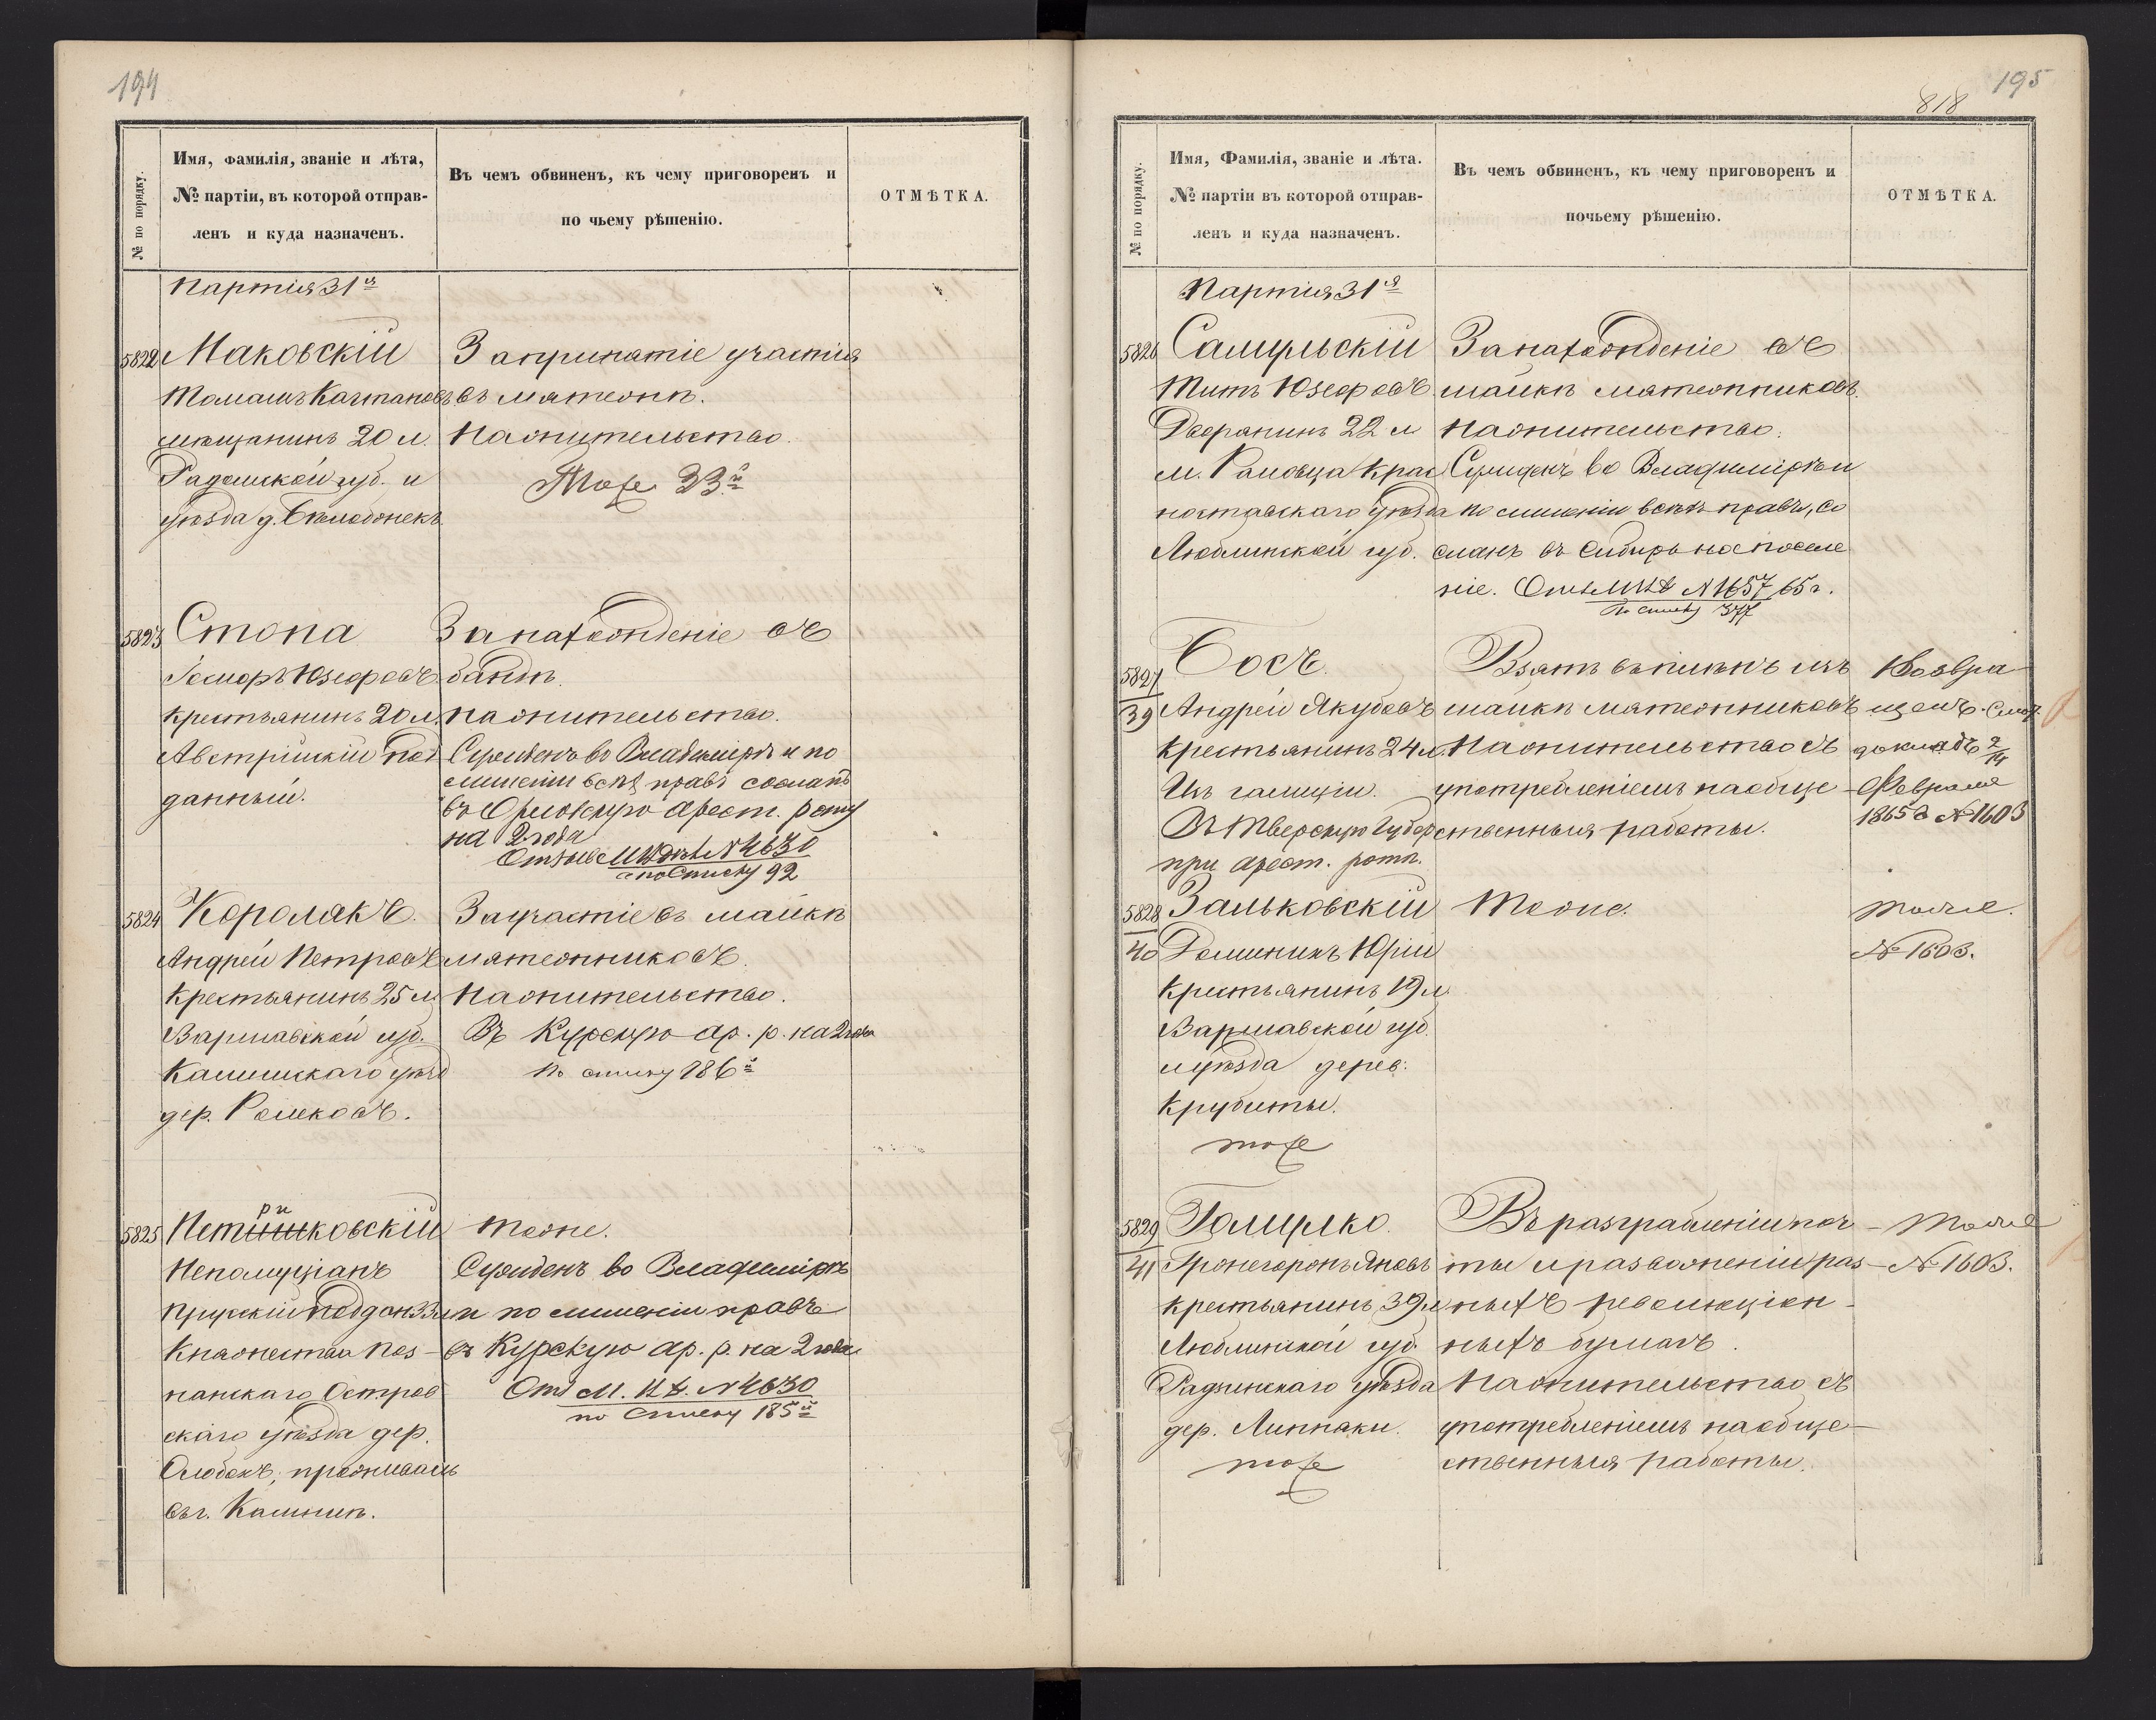 194
№ по порядку.
Имя, Фамилія, званіе и лѣта,
№ партіи, въ которой отправ-
ленъ и куда назначенъ.
Въ чемъ обвиненъ, къ чему приговоренъ и
по чьему рѣшенію.
ОТМѢТКА.
Партія 31я
5822 Маковскій
Томашъ Каэтановъ
мѣщанинъ 20 л.
Радомской губ. и
уѣзда д.
За принятіе участія
въ мятежѣ.
На жительство.
Тоже 33й
5823 Стопа
Юзефовъ
крестьянинъ 20 л.
Австрійскій под
данный.
За нахожденіе въ
бандѣ.
На жительство.
Сужденъ во Владимірѣ и по
лишеніи всѣхъ правъ сосланъ
въ Орловскую арест. роту
на 2 года
Отзывъ № 4630
по списку 92
5824 Королякъ
Андрей Петровъ
крестьянинъ 25 л.
Варшавской губ.
Калишскаго уѣзд
дер.
За участіе въ шайкѣ
мятежниковъ.
На жительство.
Въ Курскую ар. р. на 2 года
по списку 186й
5825 Петрицковскій
ри
Непомуціанъ
Прусскій поддан 33 л.
Княжества Поз-
нанскаго Остров
скаго уѣзда дер.
проживалъ
въ г. Калишѣ.
Тоже.
Сужденъ во Владимірѣ
и по лишеніи правъ
въ Курскую ар. р. на 2 года
От М. В. Д. № 4630
по списку 185й
195
818
№ по порядку.
Имя, Фамилія, званіе и лѣта.
№ партіи въ которой отправ-
ленъ и куда назначенъ.
Въ чемъ обвиненъ, къ чему приговоренъ и
почьему рѣшенію.
ОТМѢТКА.
Партія 31я
5826
Титъ Юзефовъ.
Дворянинъ 22 л
м. Крас
ноставскаго уѣзда
Люблинской губ.
За нахожденіе въ
шайкѣ мятежниковъ.
На жительство.
Сужденъ во Владимірѣ и
по лишеніи всѣхъ правъ, со
сланъ въ Сибирь на поселе
ніе. № 1657 65 г.
По списку 377
5827
39
Босъ.
Андрей Якубовъ
крестьянинъ 24 л.
Изъ Галиціи.
Въ Тверскую Губер
при арест. ротѣ.
Взятъ въ плѣнъ изъ
шайки мятежниковъ
На жительство съ
употребленіемъ на обще-
ственныя работы.
Возвра-
щенъ. Смот.
докладъ 2/14
Февраля
1865 г № 1603
5828
40
Зальковскій
Доминикъ Юрій
крестьянинъ 19 л.
Варшавской губ.
и уѣзда дерев:
тоже
Тоже.
тоже.
№ 1603.
5829
41
крестьянинъ 39 л
Люблинской губ.
Радзинскаго уѣзда
дер. Липняки.
тоже
Въ разграбленіи поч-
ты и развоженіи раз-
ныхъ революціон-
ныхъ бумагъ.
На жительство съ
употребленіемъ на обще-
ственныя работы.
тоже
№ 1603.